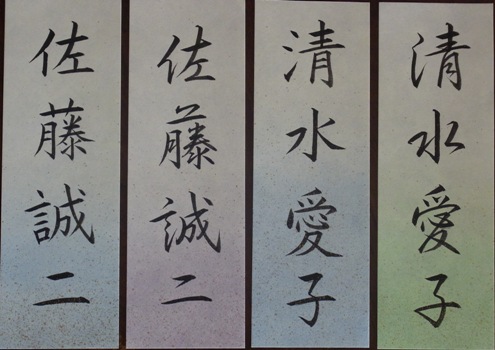 清水愛子
清水愛子
佐藤誠二
佐藤誠二